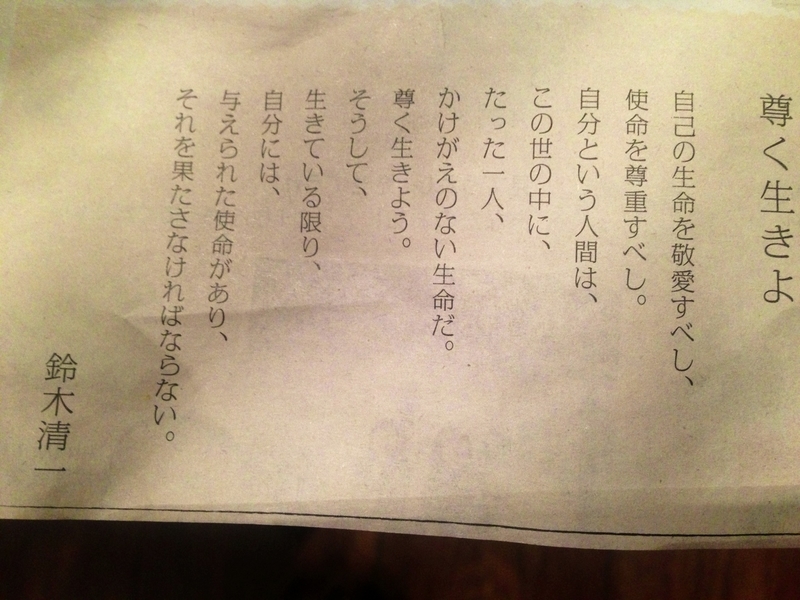 尊く生きよ
自己の生命を敬愛すべし、
使命を尊重すべし。
自分という人間は、
この世の中に、
たった一人、
かけがえのない生命だ。
尊く生きよう。
そうして、
生きている限り、
自分には、
与えられた使命があり、
それを果たさなければならない。
鈴木清一